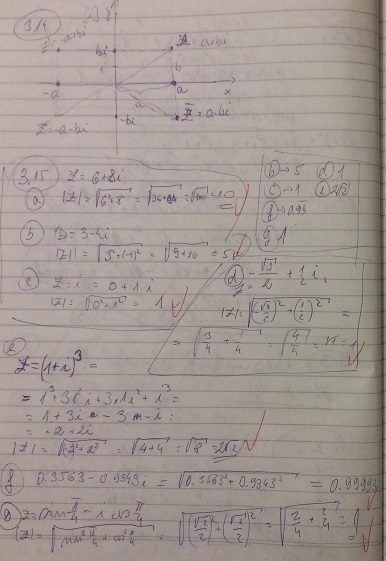 3.14
a+bi
bi
z = a+bi
b
-a
a
x
-bi
z = -a-bi
z = a-bi
3.15 z = 6+8i
a) |z| = √6²+8² = √36+64 = √100 = 10
b) z = 3-4i
|z| = √3²+(-4)² = √9+16 = 5
c) z = i = 0+1·i
|z| = √0²+1² = 1
b) → 5 d) 1
c) → 1 e) 2√2
f) → 0.99
g 1
d) -√3/2 + 1/2 i
|z| = √(√3/2)² + (1/2)² =
= √3/4 + 1/4 = √4/4 = √1 = 1
e)
z = (1+i)³ =
= 1³+3i²i+3·1i²+i³ =
= 1+3i - 3 - i =
= -2+2i
|z| = √(-2)²+2² = √4+4 = √8 = 2√2
f) 0.3563 - 0.9343i = √0.3563²+0.9343² = 0.99993
g z = sin π/4 - i cos π/4
|z| = √sin² π/4 + cos² π/4 = √(√2/2)² + (√2/2)² = √2/4 + 2/4 = 1